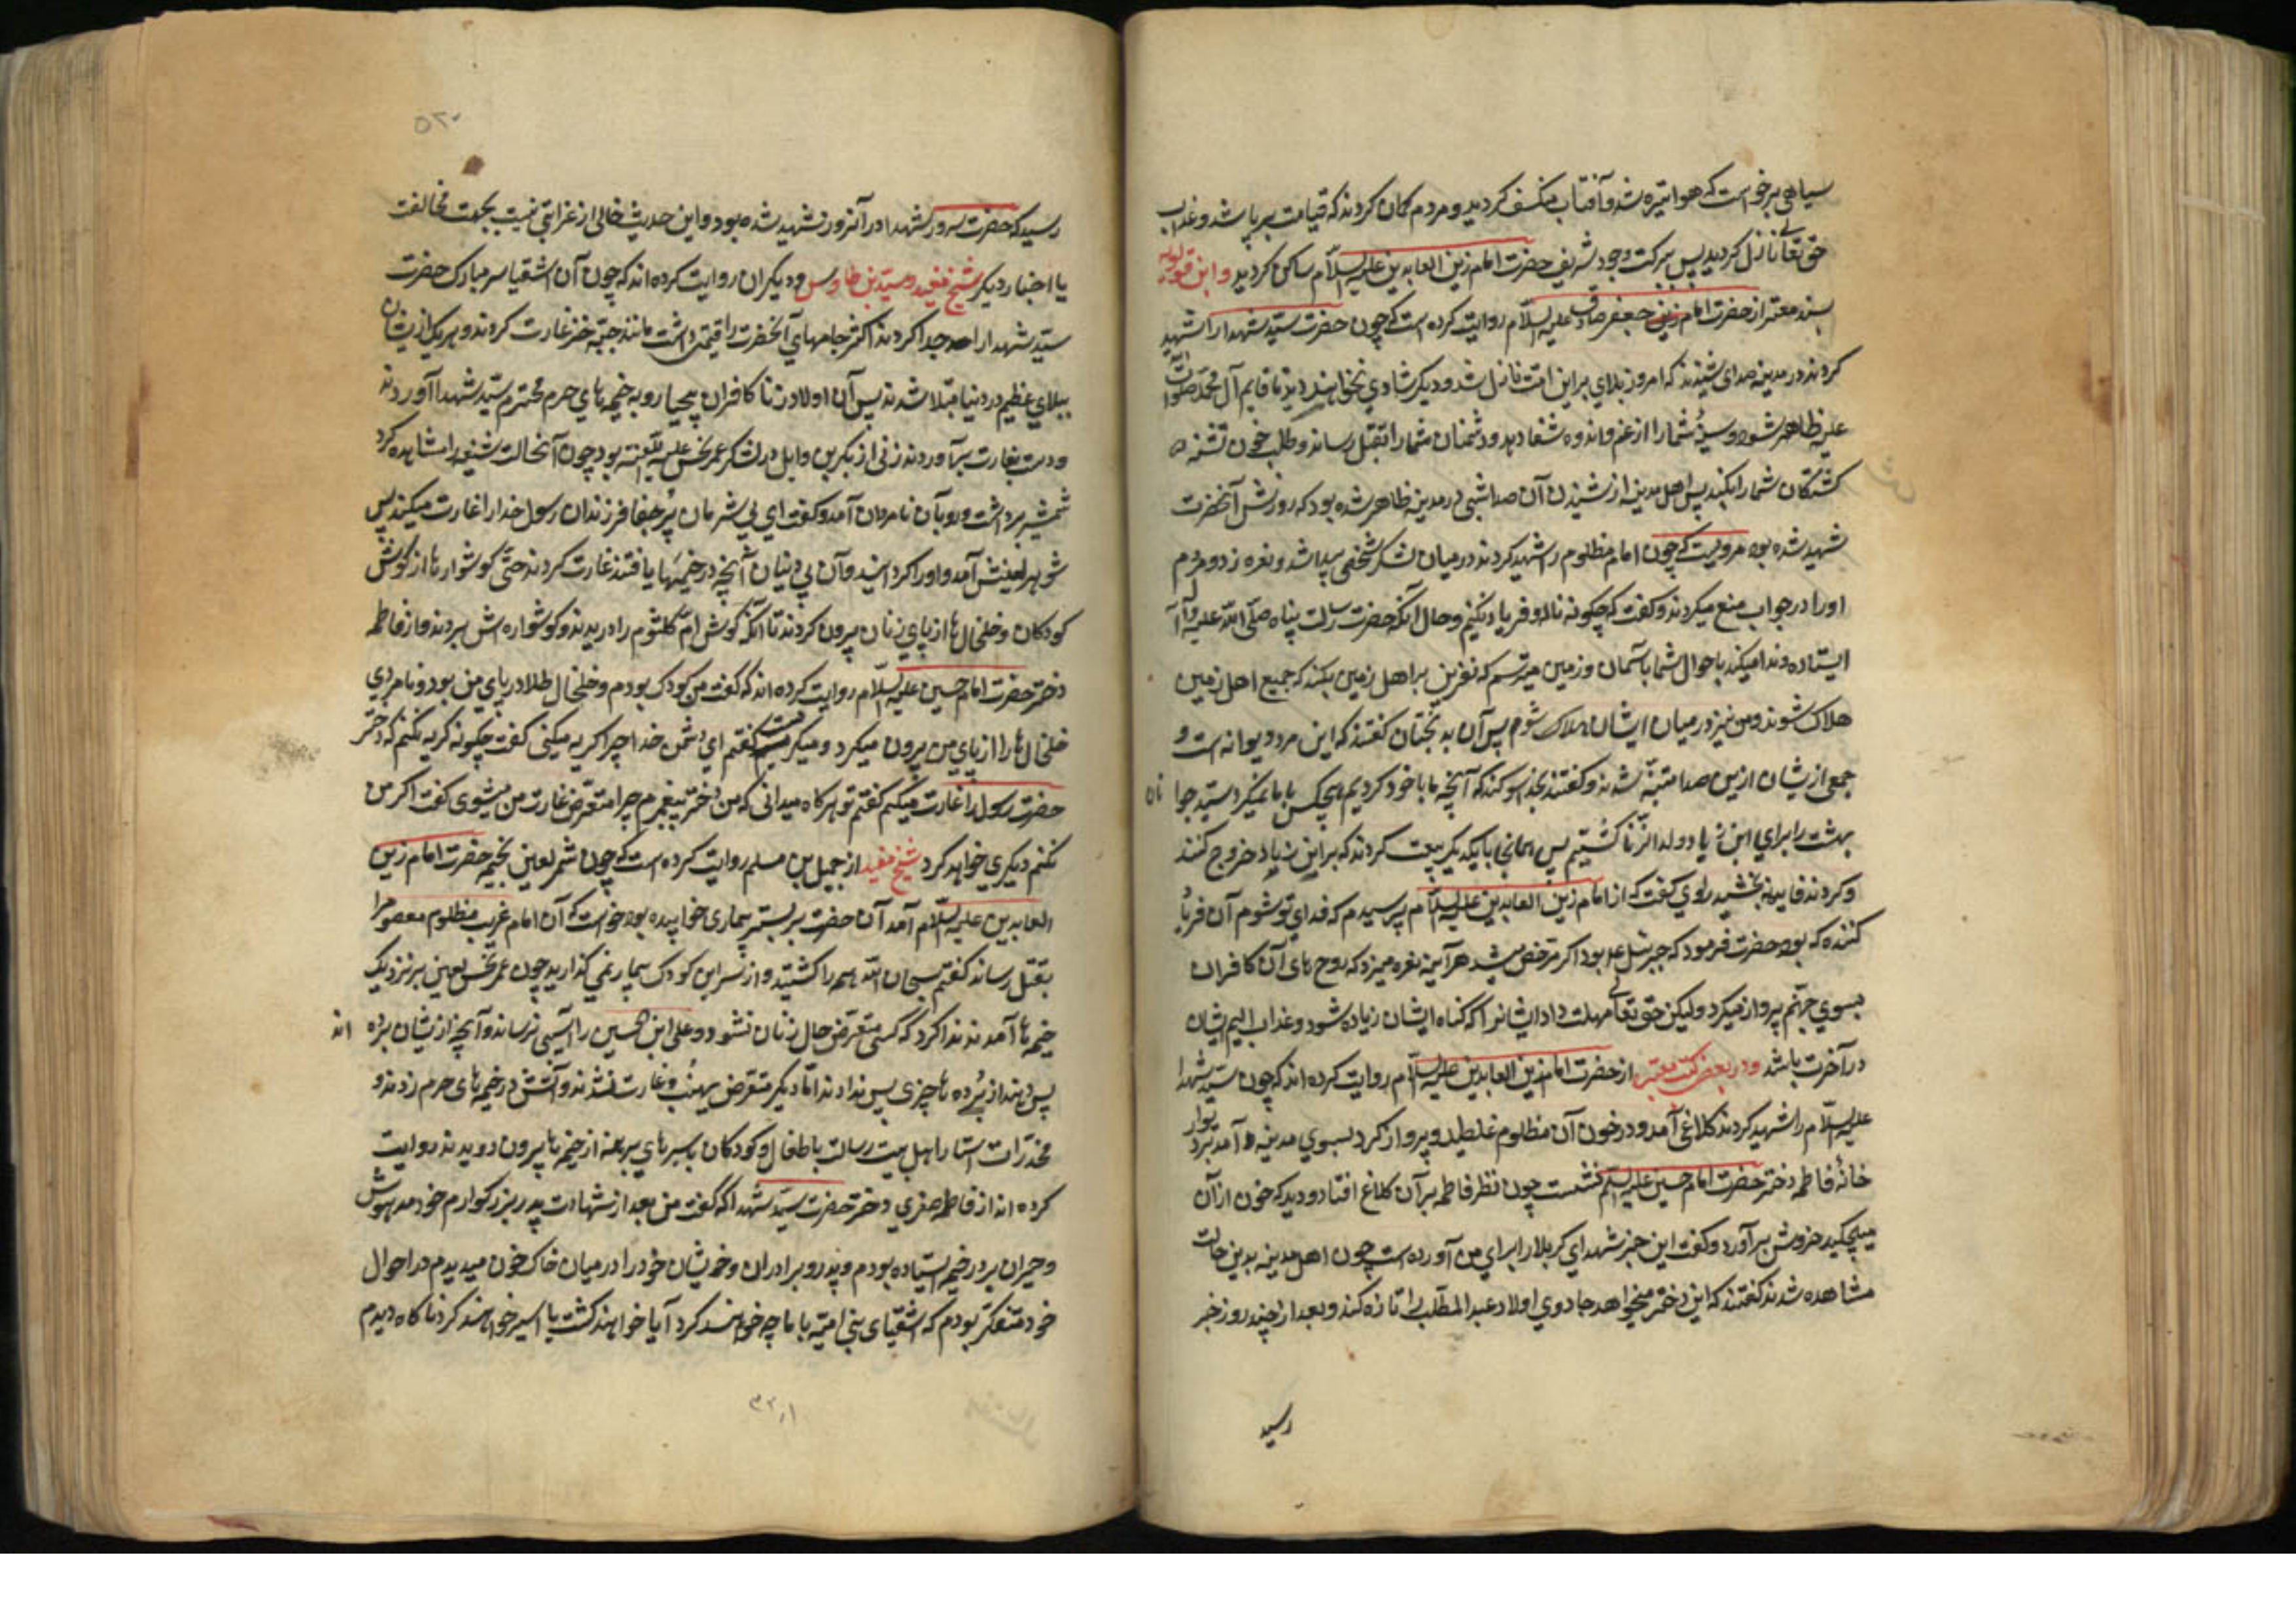 سیاهی برخواست که هوا تیره شد و آفتاب منکسف کردید و مردم کمان کردند که قیامت برپا شد و عذاب
حق تعالی نازل کردید پس ببرکت وجود شریف حضرت امام زین العابدین علیه السلام ساکن کردید و ابن قولویه
بسند معتبر از حضرت امام جعفر صادق علیه السلام روایت کرده است که چون حضرت سید شهدا را شهید
کردند در مدینه صدای شنیدند که امروز بلای براین امت نازل شد و دیکر شادی نخواهند دید تا قایم آل محمد صلوات
علیه ظاهر شود و سینۀ شما را از غم و اندوه شفا دهد و دشمنان شما را بقتل رساند و طلب خون
کشتکان شما را بکند پس اهل مدینه از شنیدن آن صدا شبی در مدینه ظاهر شده بود که روزش آنحضرت
شهید شده بود مرویست که چون امام مظلوم را شهید کردند در میان لشکر شخصی پیدا شد و نعره زد و مردم
اورا در جواب منع میکردند و کفت که چکونه ناله و فریاد نکنم و حال آنکه حضرت رسالت پناه صلی الله علیه و آله
ایستاده و ندا میکند باحوال شما باسمان و زمین میترسم که نفرین بر اهل زمین بکند که جمیع اهل زمین
هلاک شوند و من نیز در میان ایشان هلاک شوم پس آن بدبختان کفتند که این مرد دیوانه است و
جمعی ازیشان ازین صدا متنبه شدند و کفتند بخدا سوکند که آنچه ما با خود کردیم هیچکس با ما نمیکرد سید جوا نان
بهشت را برای ابن زیاد ولد الزنا کشتیم پس همانجا با یکدیکر بیعت کردند که بر ابن زیاد خروج کنند
و کردند فایده نبخشید راوی کفت که از امام زین العابدین علیه السلام پرسیدم که فدای تو شوم آن فریاد
کننده که بود حضرت فرمود که جبرئیل بود اکر مرخص میشد هرآینه نعره میزد که روح های آن کافران
بسوی جهنم پرواز میکرد ولیکن حق تعالی مهلت داد ایشانرا که کناه ایشان زیاده شود و عذاب الیم ایشان
در آخرت باشد و در بعض کتب معتبره از حضرت امام زین العابدین علیه السلام روایت کرده اند که چون سید شهدا
علیه السلام را شهید کردند کلاغی آمد و در خون آن مظلوم غلطید و پرواز کرد بسوی مدینه و آمد بر دیوار
خانۀ فاطمه دختر حضرت امام حسین علیه السلم نشست چون نظر فاطمه برآن کلاغ افتاد و دید که خون ازآن
میچکید خروش برآورد و کفت این خبر شهدای کربلا را برای من آورده است چون اهل مدینه بدین حالت
مشاهده شدند کفتند که این دختر میخواهد جادوی اولاد عبد المطلب را تازه کند و بعد از چند روز خبر
رسید
۵۲۰
رسید که حضرت سرور شهدا در آنروز شهید شده بود و این حدیث خالی از غرابتی نیست بجهت مخالفت
با اخبار دیکر شیخ مفید و سید بن طاوس و دیکران روایت کرده اند که چون آن اشقیا سر مبارک حضرت
سید شهدا را جدا کردند اکثر جامهای آنحضرت را قیمتی داشت مانند جبۀ خز غارت کردند و هریک ازیشان
ببلای عظیم در دنیا مبتلا شدند پس آن اولاد زنا کافران بیحیا رو به خیمه های حرم محترم سید شهدا آوردند
و دست بغارت برآوردند زنی از بکر بن وایل در لشکر عمر نحس علیه اللعنه بود چون آنحالت شنیع را مشاهده کرد
شمشیر برداشت و رو بآن نامردان آمد و کفت ای بی شرمان پر جفا فرزندان رسول خدا را غارت میکنند پس
شوهر لعینش آمد و اورا کردانید و آن بی دینان آنچه در خیمها یافتند غارت کردند حتی کوشوارها از کوش
کودکان و خلخال ها از پای زنان بیرون کردند تا آنکه کوش ام کلثوم را دریدند و کوشواره اش بردند و از فاطمه
دختر حضرت امام حسین علیه السلام روایت کرده اند که کفت من کودک بودم و خلخال طلا در پای من بود و نامردی
خلخال ها را از پای من بیرون میکرد و میکریست کفتم ای دشمن خدا چرا کریه میکنی کفت چکونه کریه نکنم که دختر
حضرت رسول را غارت میکنم کفتم تو هرکاه میدانی که من دختر پیغمبرم چرا متعرض غارت من میشوی کفت اکر من
نکنم دیکری خواهد کرد شیخ مفید از جمیل بن مسلم روایت کرده است که چون شمر لعین بخیمه حضرت امام زین
العابدین علیه السلام آمد آن حضرت بر بستر بیماری خوابیده بود خواست که آن امام غریب مظلوم معصوم را
بقتل رساند کفتم سبحان الله همه را کشتید و از سر این کودک بیمار نمی کذارید چون عمر نحس لعین بر نزدیک
خیمه ها آمدند ندا کرد که کسی متعرض حال زنان نشود و علی ابن الحسین را آسیبی نرساند و آنچه ازیشان برده اند
پس دهند از برده ها چیزی پس ندادند اما دیکر متعرض نهب و غارت نشدند و آتش در خیمه های حرم زدند و
مخدرات استار اهل بیت رسالت با طفال و کودکان با سرهای برهنه از خیمه ها بیرون دویدند روایت
کرده اند از فاطمه صغری دختر حضرت سید شهدا که کفت من بعد از شهادت پدر بزرکوارم خود مدهوش
و حیران بر در خیمه ایستاده بودم و پدر و برادران و خویشان خود را در میان خاک خون میدیدم در احوال
خود متفکر بودم که اشقیای بنی امیه با ما چه خواهند کرد آیا خواهند کشت یا اسیر خواهند کرد ناکاه دیدم